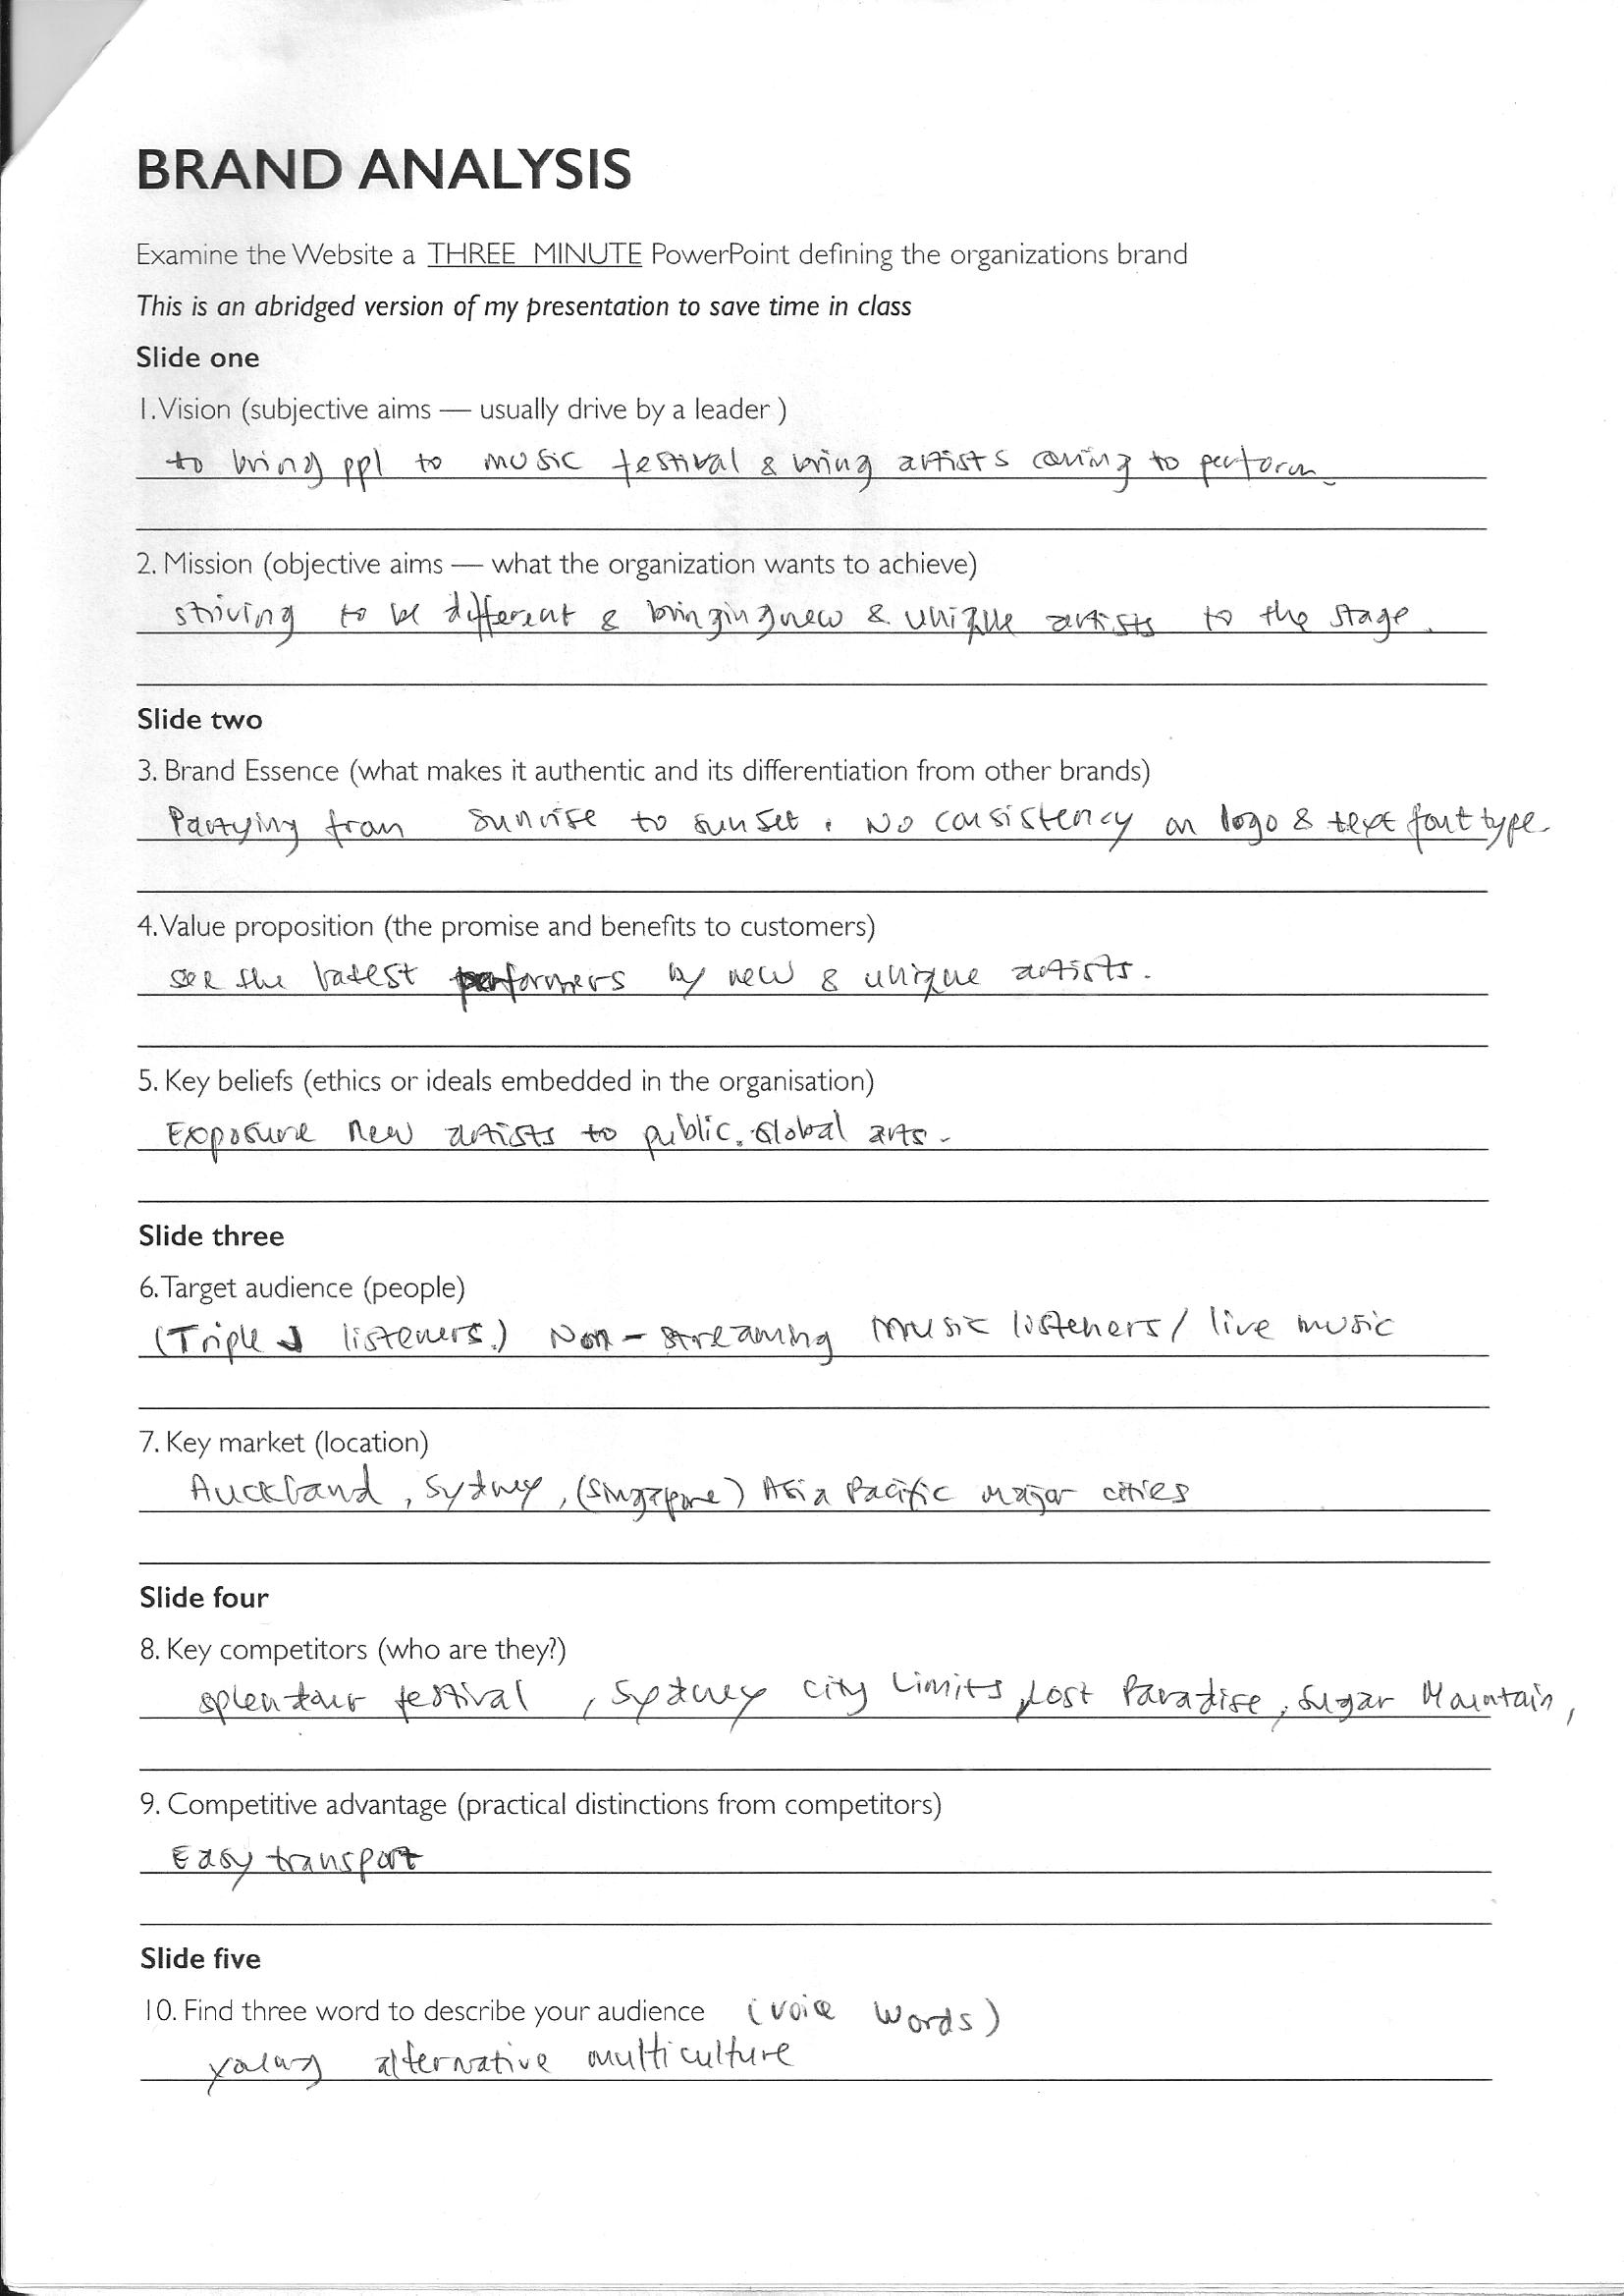 BRAND ANALYSIS
Examine the Website a THREE MINUTE PowerPoint defining the organizations brand
This is an abridged version of my presentation to save time in class
Slide one
1. Vision (subjective aims — usually drive by a leader )
to bring ppl to music festival & bring artists coming to perform.
2. Mission (objective aims — what the organization wants to achieve)
striving to be different & bringing new & unique artists to the stage.
Slide two
3. Brand Essence (what makes it authentic and its differentiation from other brands)
Partying from sunrise to sunset. No consistency on logo & text font type.
4. Value proposition (the promise and benefits to customers)
see the latest performers by new & unique artists.
5. Key beliefs (ethics or ideals embedded in the organisation)
Exposure new artists to public. Global arts.
Slide three
6. Target audience (people)
(Triple J listeners.) Non-streaming music listeners/ live music
7. Key market (location)
Auckland, Sydney, (Singapore) Asia Pacific major cities
Slide four
8. Key competitors (who are they?)
splendour festival, Sydney city Limits, Lost Paradise, Sugar Mountain,
9. Competitive advantage (practical distinctions from competitors)
Easy transport
Slide five
10. Find three word to describe your audience (voice words)
young alternative multiculture